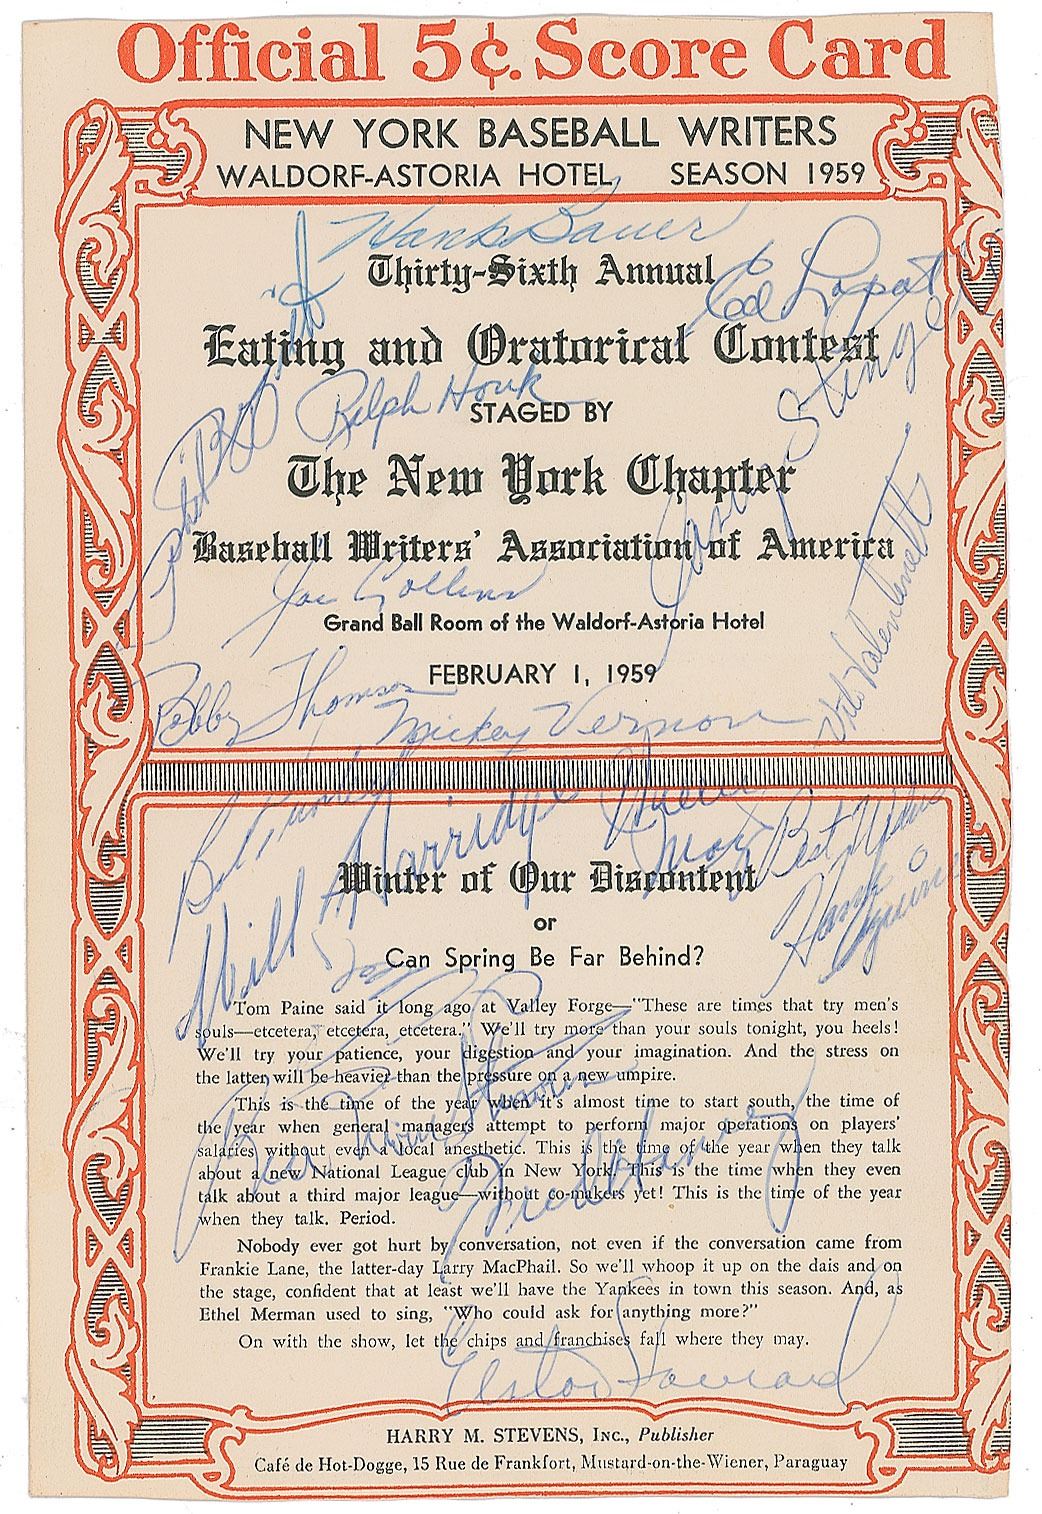 Official 5¢. Score Card
NEW YORK BASEBALL WRITERS
WALDORF-ASTORIA HOTEL SEASON 1959
Hank Bauer
Thirty-Sixth Annual
Ed Lopat
Eating and Oratorical Contest
Ralph Houk
STAGED BY
Casey Stengel
The New York Chapter
Baseball Writers' Association of America
Joe Collins
Grand Ball Room of the Waldorf-Astoria Hotel
Vito Valentinetti
FEBRUARY 1, 1959
Bobby Thomson
Mickey Vernon
Bob Turley
Will Harridge
Willie Mays
Best Wishes
Hank Aguirre
Winter of Our Discontent
or
Can Spring Be Far Behind?
Tom Paine said it long ago at Valley Forge—"These are times that try men's
souls—etcetera, etcetera, etcetera." We'll try more than your souls tonight, you heels!
We'll try your patience, your digestion and your imagination. And the stress on
the latter will be heavier than the pressure on a new umpire.
This is the time of the year when it's almost time to start south, the time of
the year when general managers attempt to perform major operations on players'
salaries without even a local anesthetic. This is the time of the year when they talk
about a new National League club in New York. This is the time when they even
talk about a third major league—without co-makers yet! This is the time of the year
when they talk. Period.
Fred Haney
Nobody ever got hurt by conversation, not even if the conversation came from
Frankie Lane, the latter-day Larry MacPhail. So we'll whoop it up on the dais and on
the stage, confident that at least we'll have the Yankees in town this season. And, as
Ethel Merman used to sing, "Who could ask for anything more?"
On with the show, let the chips and franchises fall where they may.
Elston Howard
HARRY M. STEVENS, INC., Publisher
Café de Hot-Dogge, 15 Rue de Frankfort, Mustard-on-the-Wiener, Paraguay